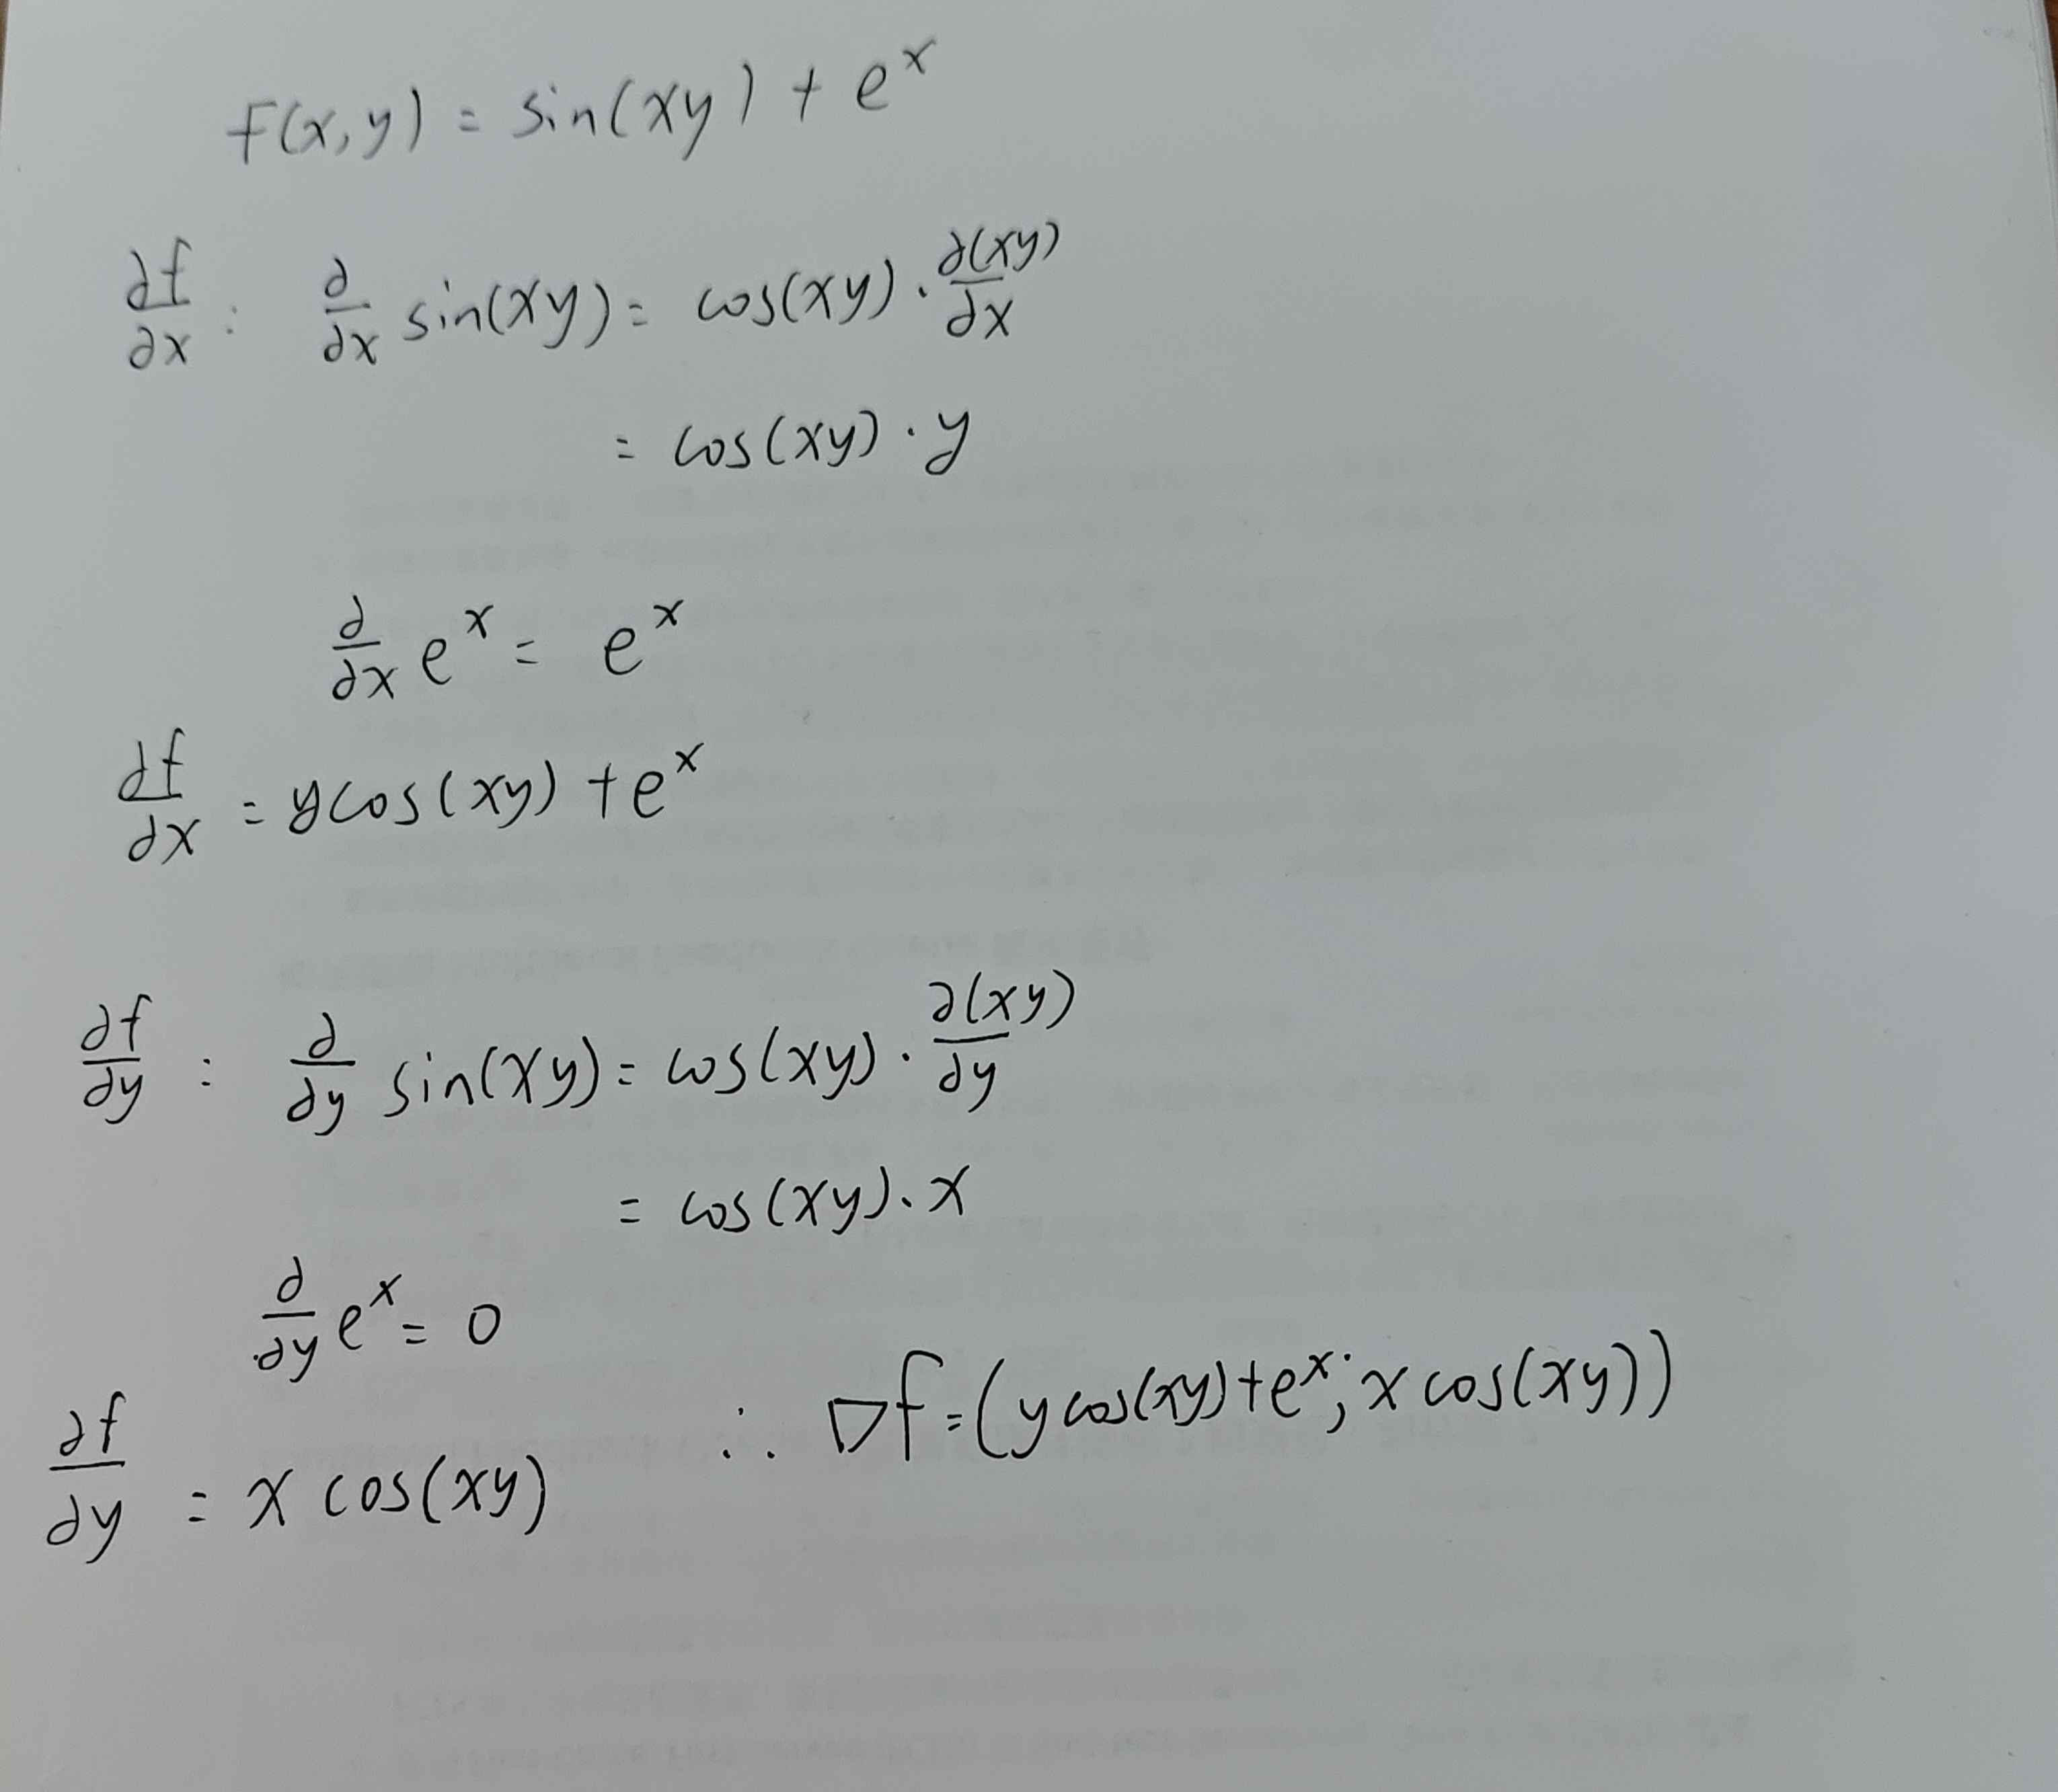 f(x,y) = sin(xy) + e^x
∂f/∂x : ∂/∂x sin(xy) = cos(xy) · ∂(xy)/∂x
= cos(xy) · y
∂/∂x e^x = e^x
∂f/∂x = ycos(xy) + e^x
∂f/∂y : ∂/∂y sin(xy) = cos(xy) · ∂(xy)/∂y
= cos(xy) · x
∂/∂y e^x = 0
∂f/∂y = x cos(xy)
∴ ∇f = (y cos(xy) + e^x; x cos(xy))